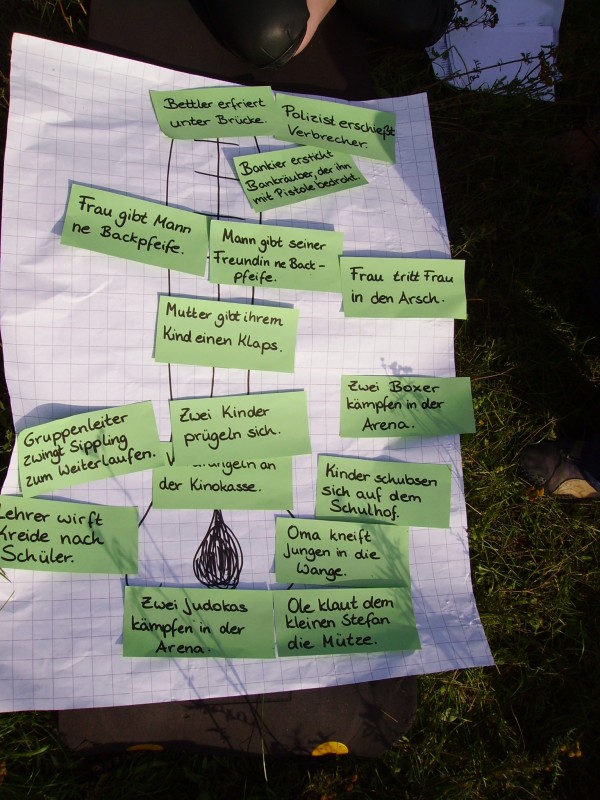 Bettler erfriert
unter Brücke.
Polizist erschießt
Verbrecher.
Bankier ersticht
Bankräuber, der ihn
mit Pistole bedroht.
Frau gibt Mann
ne Backpfeife.
Mann gibt seiner
Freundin ne Back-
pfeife.
Frau tritt Frau
in den Arsch.
Mutter gibt ihrem
Kind einen Klaps.
Zwei Boxer
kämpfen in der
Arena.
Gruppenleiter
zwingt Sippling
zum Weiterlaufen.
Zwei Kinder
prügeln sich.
an
der Kinokasse.
Kinder schubsen
sich auf dem
Schulhof.
Lehrer wirft
Kreide nach
Schüler.
Oma kneift
Jungen in die
Wange.
Zwei Judokas
kämpfen in der
Arena.
Ole klaut dem
kleinen Stefan
die Mütze.